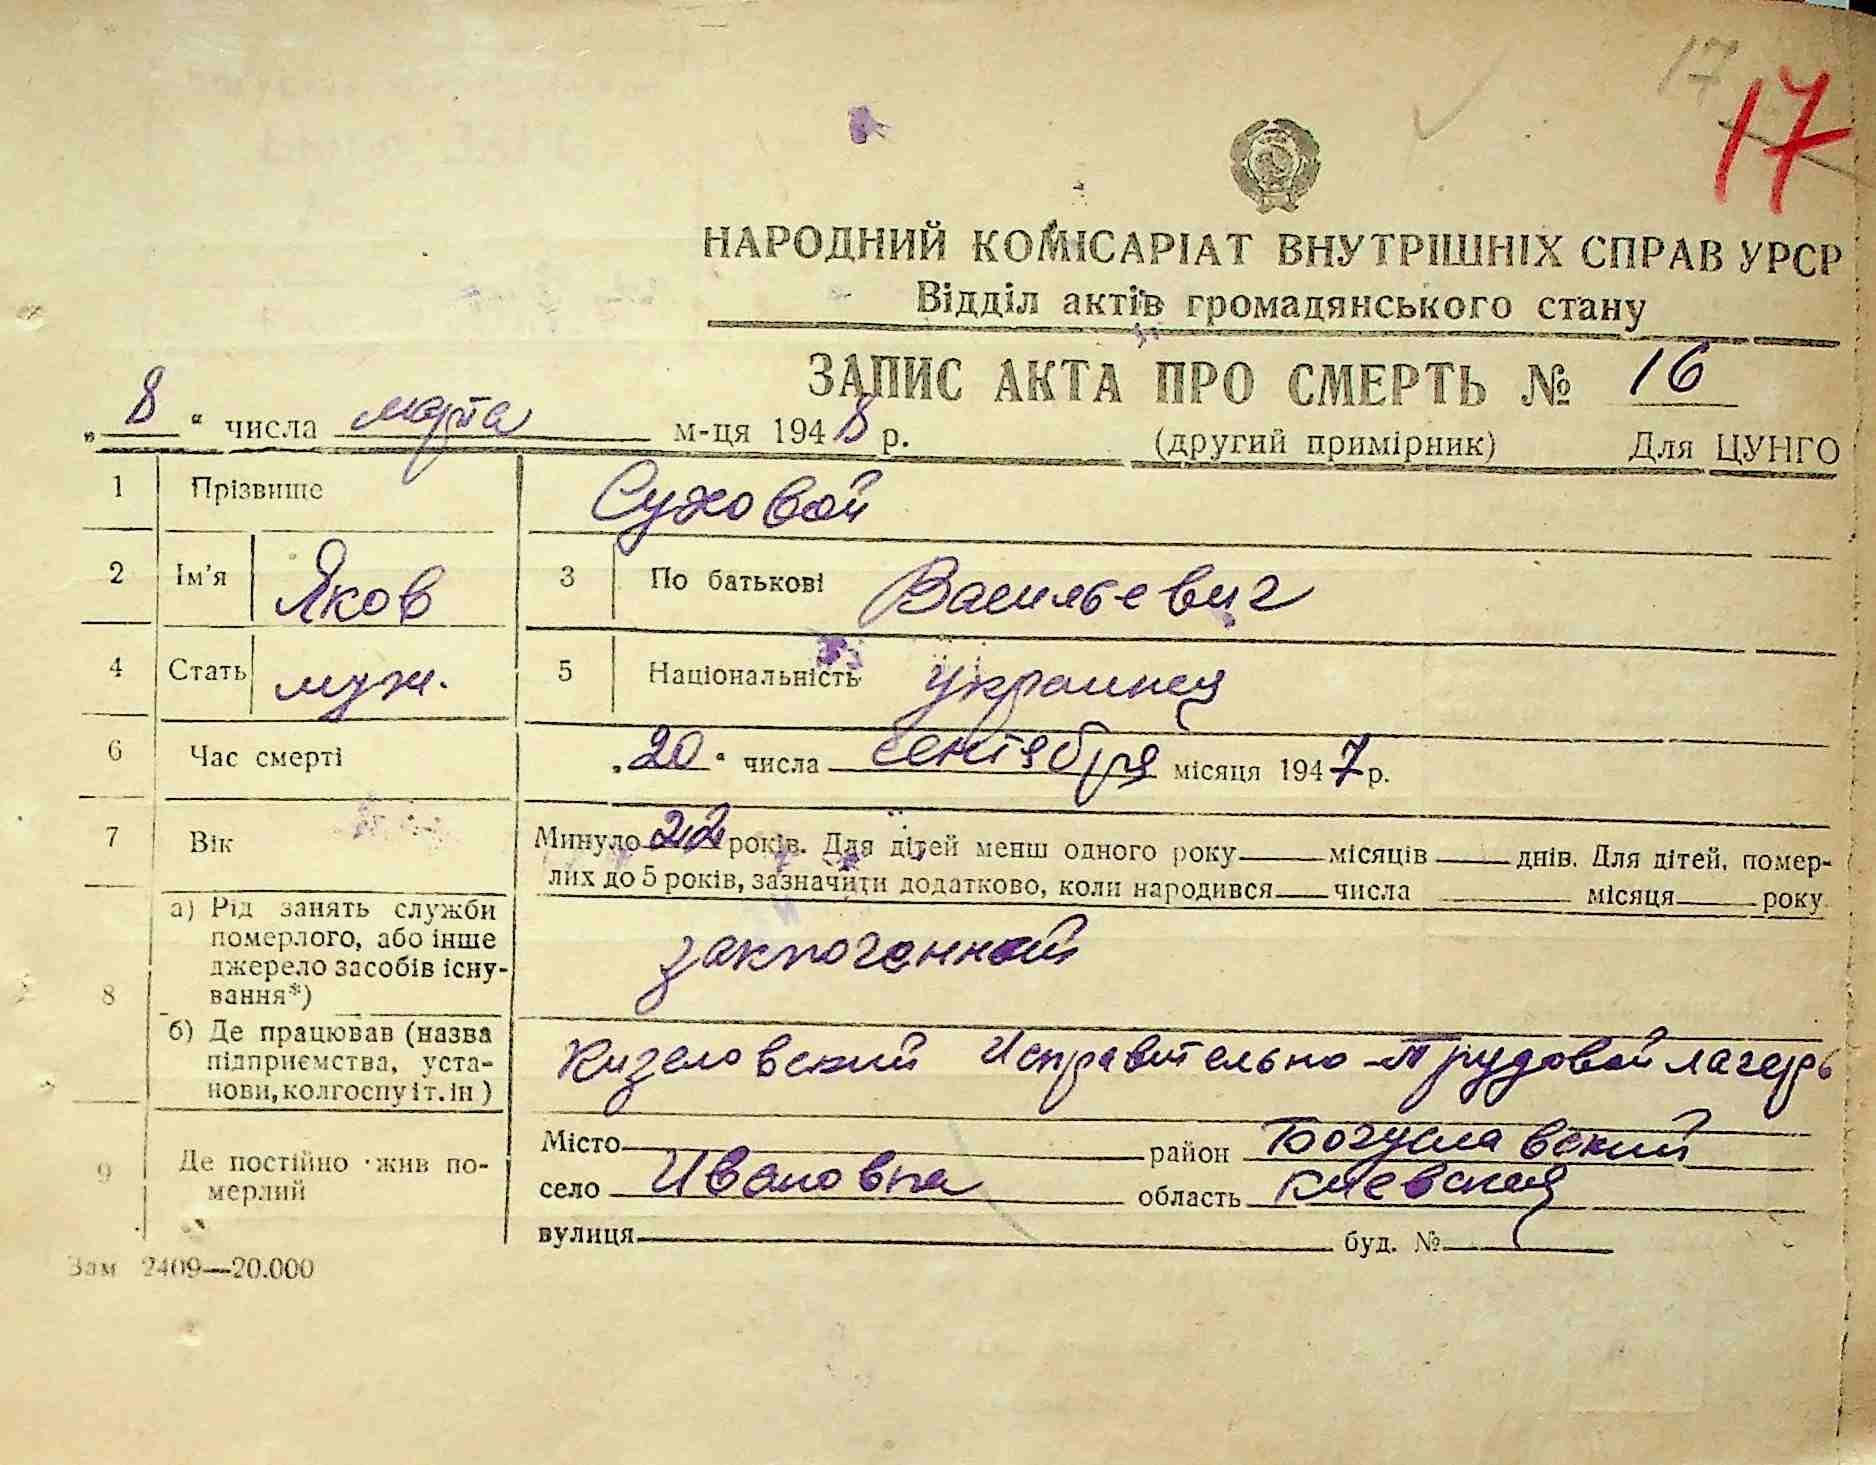 17
17
НАРОДНИЙ КОМІСАРІАТ ВНУТРІШНІХ СПРАВ УРСР
Відділ актів громадянського стану
ЗАПИС АКТА ПРО СМЕРТЬ № 16
„8“ числа марта м-ця 1948 р. (другий примірник) Для ЦУНГО
1 Прізвище Суховой
2 Ім'я Яков 3 По батькові Васильевич
4 Стать муж. 5 Національність украинец
6 Час смерті „20“ числа сентября місяця 1947 р.
7 Вік Минуло 22 років. Для дітей менш одного року місяців днів. Для дітей, помер-
лих до 5 років, зазначити додатково, коли народився числа місяця року
8 а) Рід занять служби
померлого, або інше
джерело засобів існу-
вання*) заключенный
б) Де працював (назва
підприємства, уста-
нови, колгоспу і т. ін) Кизеловский Исправительно-трудовой лагерь
9 Де постійно жив по-
мерлий
Місто район Богуславский
село Ивановка область Киевская
вулиця буд. №
Зам 2409—20.000